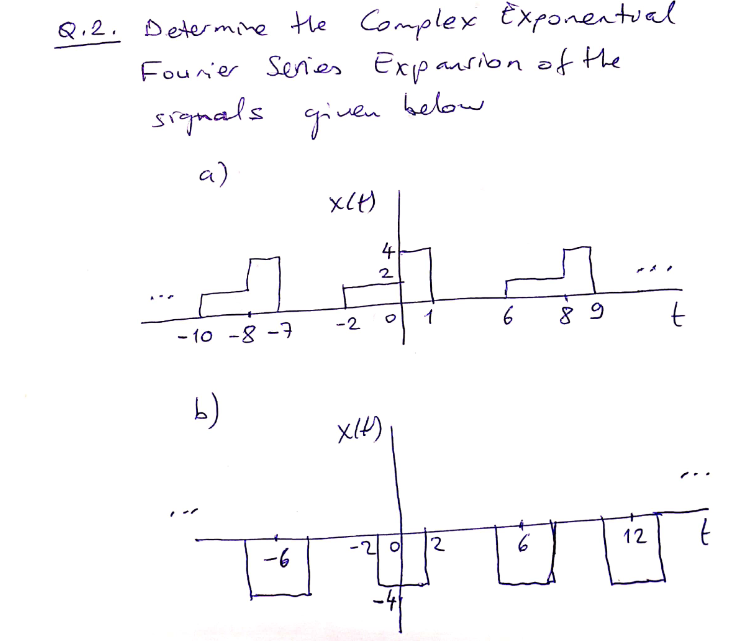 Q.2. Determine the Complex Exponentual
Fourier Series Expansion of the
signals given below
a)
x(t)
4
2
...
...
-10 -8 -7 -2 0 1 6 8 9 t
b)
x(t)
...
...
-6 -2 0 2 6 12 t
-4